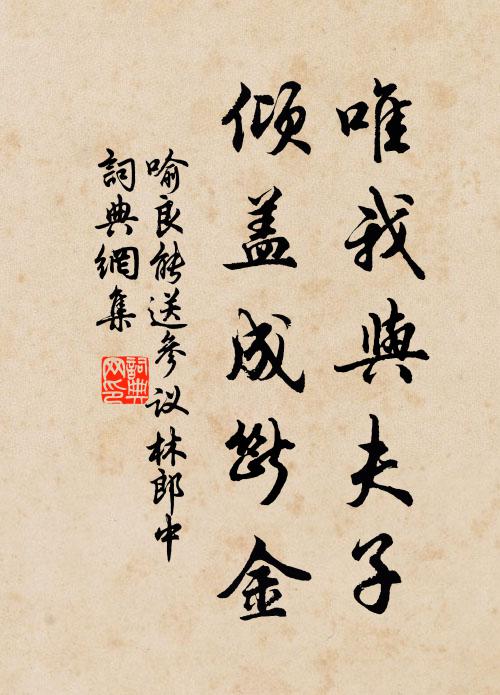 唯我與夫子
傾盖成斷金
喻良能送參议林郎中
詞典網集
詞典网印